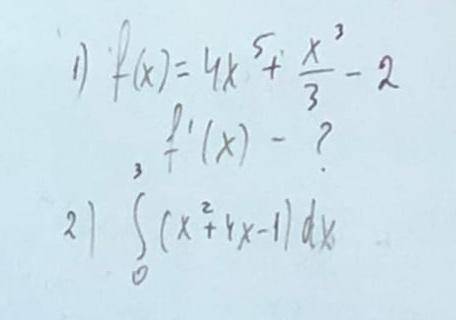 1) f(x) = 4x⁵ + x³/3 - 2
f'(x) - ?
2) ∫₀³ (x² + 4x - 1) dx